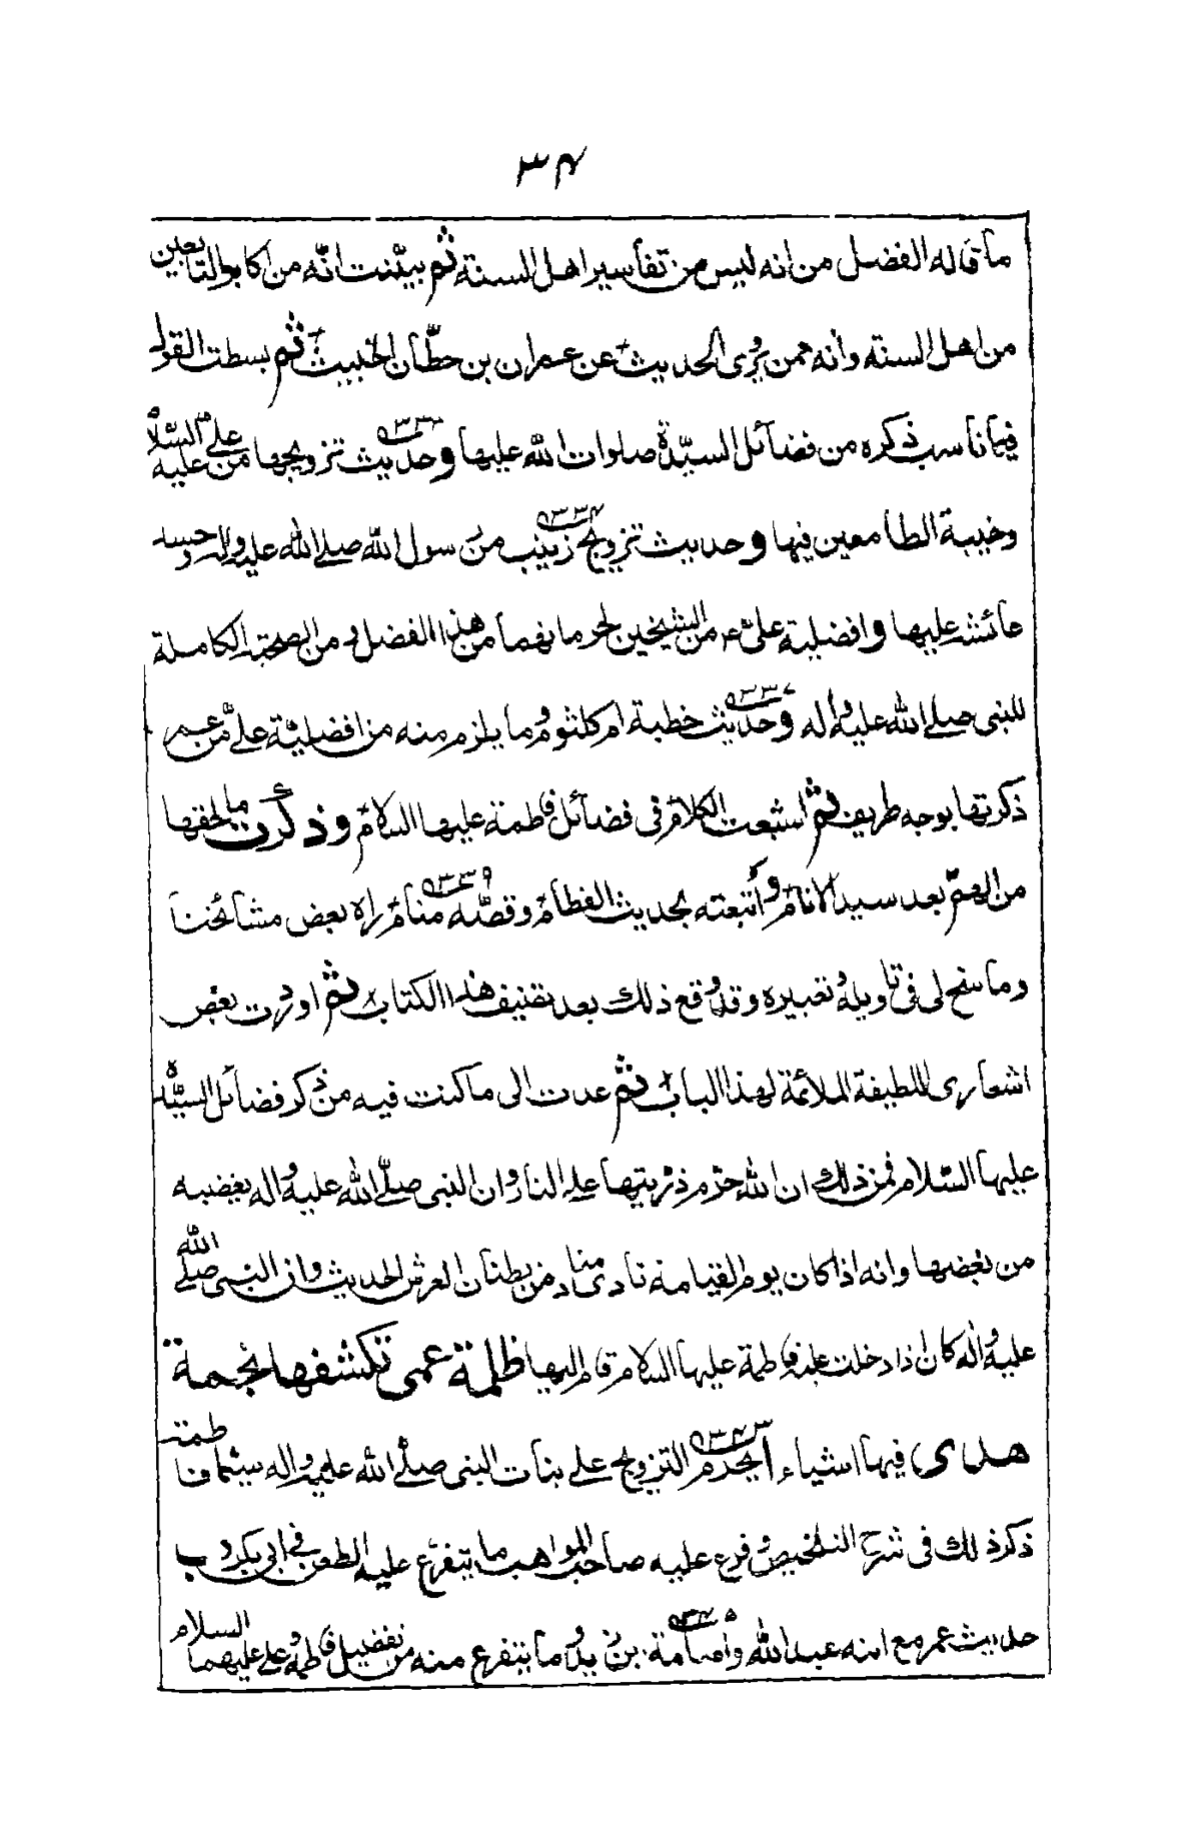 ٣٤
ما قاله الفضل من انه ليس من تفاسير اهل السنة ثم بينت انّه من اكابر التابعين
من اهل السنة وانه ممن يروى الحديث عن عمران بن حطّان الخبيث ثم بسطت القول
فيما ناسب ذكره من فضائل السيّدة صلوات الله عليها وحديث تزويجها من علي عليه السّلام
وخيبة الطامعين فيها وحديث تزويج زينب من رسول الله صلى الله عليه واله وحسد
عائشة عليها وافضلية علىّ من الشيخين لحرمانهما من هذا الفضل و من الصحبة الكاملة
للنبى صلى الله عليه واله وحديث خطبة ام كلثوم وما يلزم منه من افضلية علىّ من عمر
ذكرتها بوجه طريف ثم اشبعت الكلام فى فضائل فاطمة عليها السلام وذكرت ما لحقها
من الهمّ بعد سيد الانام و أتبعته بحديث الفطام وقصّة منام راه بعض مشائخنا
وما سنح لى فى تاويله وتعبيره وقد وقع ذلك بعد تصنيف هذا الكتاب ثم اوردت بعض
اشعارى اللطيفة الملائمة لهذا الباب ثم عدت الى ما كنت فيه من ذكر فضائل السيّدة
عليها السّلام فمن ذلك ان الله حرّم ذرّيتها على النار وان النبى صلّى الله عليه واله يغضبه
من يغضبها وانه اذا كان يوم القيامة نادى مناد من بطنان العرش الحديث وان النبى صلى الله
عليه واله كان اذا دخلت عليه فاطمة عليها السلام قام اليها ظلمة عمى تكشفها نجمة
هدى فيها اشياء ا يحرم التزويج على بنات النبى صلّى الله عليه واله سيّما فاطمة
ذكر ذلك فى شرح التلخيص وفرع عليه صاحب المواهب ما يتفرّع عليه الطعن فى ابى بكر د ب
حديث عمر مع ابنه عبد الله وأسامة بن زيد وما يتفرع منه من تفضيل فاطمة و على عليهما السلام